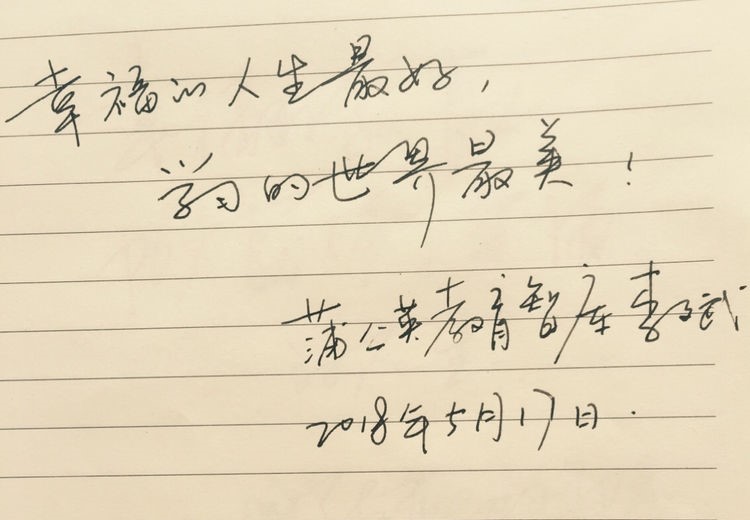 幸福的人生最好,
学习的世界最美!
蒲公英教育智库李斌
2018年5月17日.